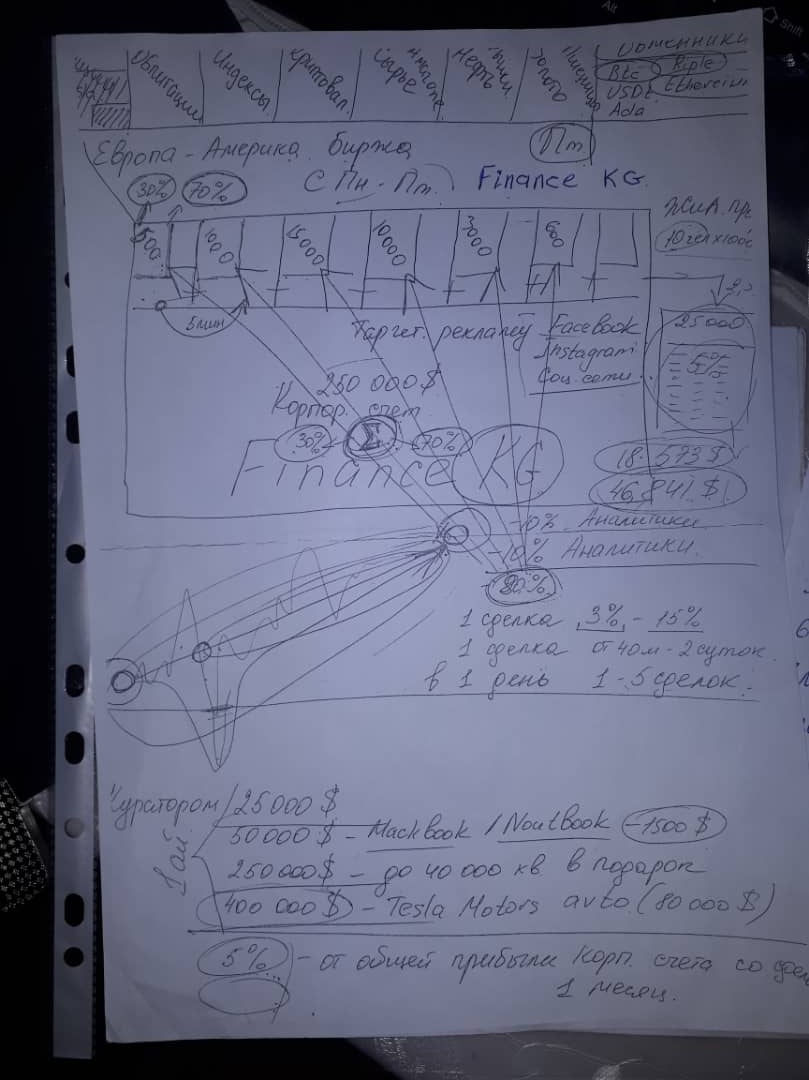 Облигации Индексы Криптовал. Сырье Нефть Золото Пшеница
Обменники
Btc Riple
USDt Ethereium
Ada
Европа - Америка биржа
Пт
30% 70%
С Пн - Пт. Finance KG.
500 1000 15000 10000 3000 600
10 чел х 100$
5 мин
25000
5%
Таргет. рекламу Facebook
Instagram
Соц. сети
250 000 $
Корпор. счет
30% Σ 70%
Finance KG
18.573 $
46,841 $
-10% Аналитики
-10% Аналитики.
80%
1 сделка 3% - 15%
1 сделка от 40м - 2 суток.
в 1 день 1 - 5 сделок.
Куратором 25 000 $
50 000 $ - Mackbook / Noutbook -1500 $
250 000 $ - до 40 000 кв в подарок
400 000 $ - Tesla Motors avto (80 000 $)
5% - от общей прибыли Корп. счета со
1 месяц.